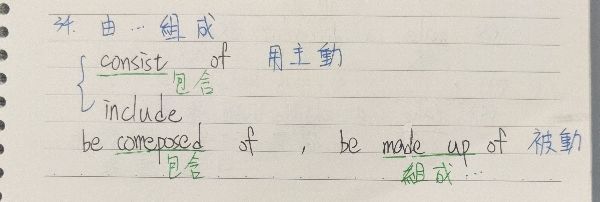 34. 由…組成
consist of 用主動
包含
include
be comeposed of , be made up of 被動
包含 組成…